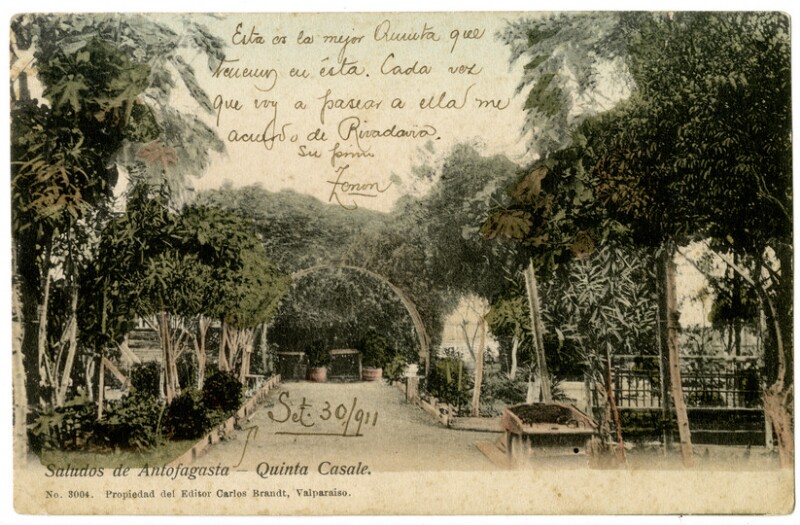 Esta es la mejor Quinta que
tenemos en ésta. Cada vez
que voy a pasear a ella me
acuerdo de Rivadavia.
Su primo
Zenon
Set. 30/911
Saludos de Antofagasta – Quinta Casale.
No. 3004. Propiedad del Editor Carlos Brandt, Valparaiso.